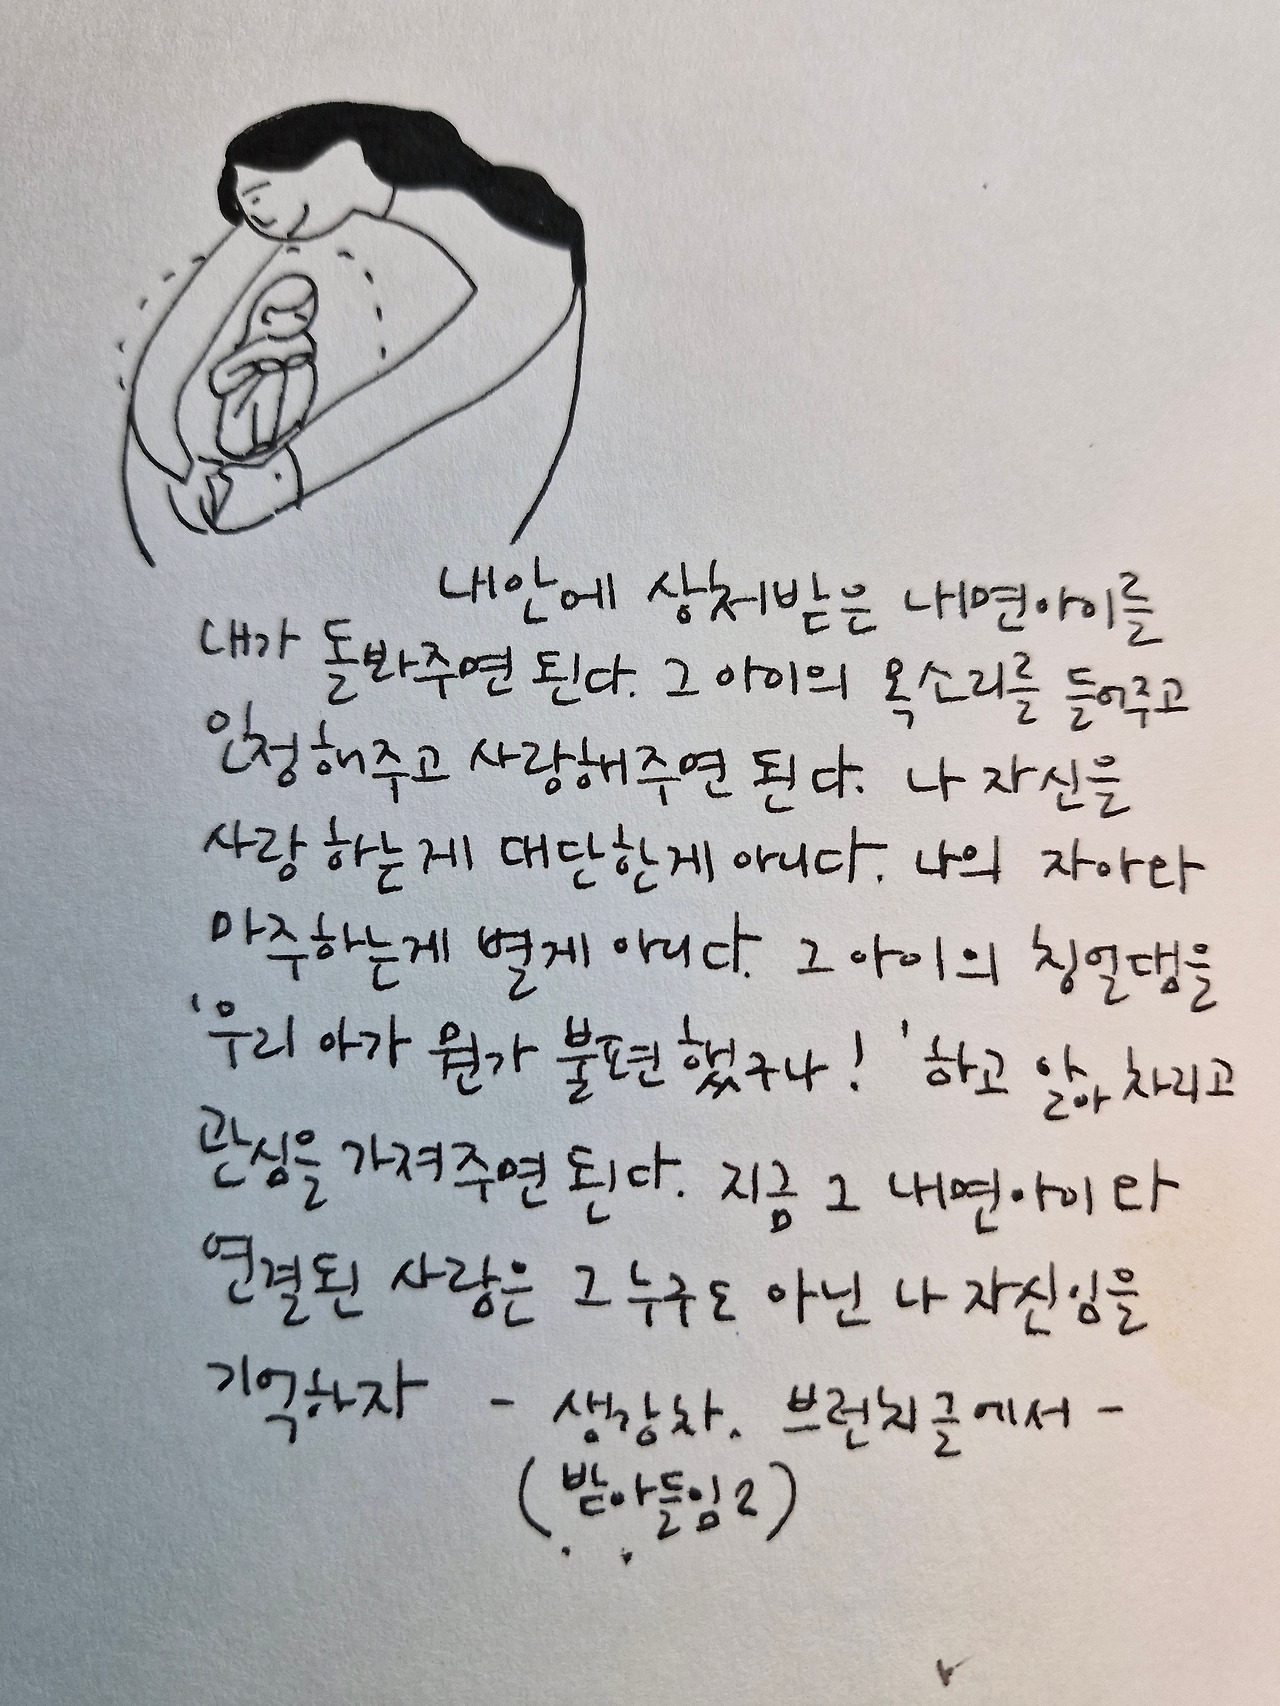 내안에 상처받은 내면아이를
내가 돌봐주면 된다. 그 아이의 목소리를 들어주고
인정해주고 사랑해주면 된다. 나 자신을
사랑하는게 대단한게 아니다. 나의 자아와
마주하는게 별게 아니다. 그 아이의 칭얼댐을
'우리 아가 뭔가 불편했구나!' 하고 알아차리고
관심을 가져주면 된다. 지금 그 내면아이와
연결된 사랑은 그 누구도 아닌 나 자신임을
기억하자 - 생강차. 브런치글에서 -
(받아들임 2)